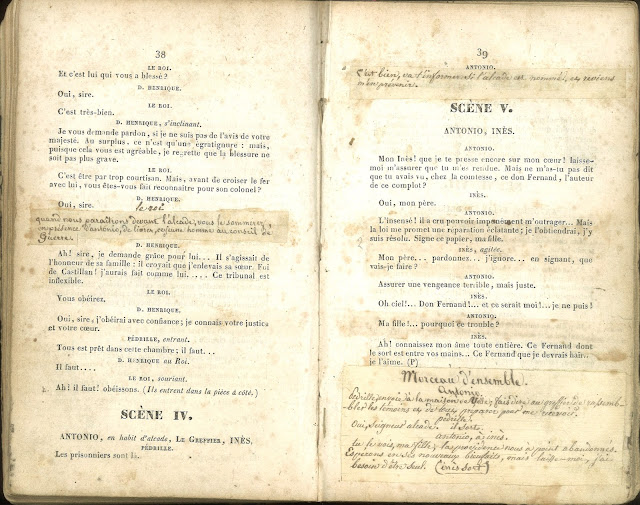 38
LE ROI.
Et c'est lui qui vous a blessé?
D. HENRIQUE.
Oui, sire.
LE ROI.
C'est très-bien.
D. HENRIQUE, s'inclinant.
Je vous demande pardon, si je ne suis pas de l'avis de votre
majesté. Au surplus, ce n'est qu'une égratignure; mais,
puisque cela vous est agréable, je regrette que la blessure ne
soit pas plus grave.
LE ROI.
C'est être par trop courtisan. Mais, avant de croiser le fer
avec lui, vous êtes-vous fait reconnaître pour son colonel?
D. HENRIQUE.
Oui, sire.
le roi
quand nous paraîtrons devant l'alcade, vous le sommerez,
en présence d'antonio, de livrer ce jeune homme au conseil de
Guerre.
D. HENRIQUE.
Ah! sire, je demande grâce pour lui... Il s'agissait de
l'honneur de sa famille: il croyait que j'enlevais sa sœur. Foi
de Castillan! j'aurais fait comme lui..... Ce tribunal est
inflexible.
LE ROI.
Vous obéirez.
D. HENRIQUE.
Oui, sire, j'obéirai avec confiance; je connais votre justice
et votre cœur.
PÉDRILLE, entrant.
Tous est prêt dans cette chambre; il faut...
D. HENRIQUE au Roi.
Il faut....
LE ROI, souriant.
Ah! il faut! obéissons. (Ils entrent dans la pièce à côté.)
SCÈNE IV.
ANTONIO, en habit d'alcade, LE GREFFIER, INÈS.
PÉDRILLE.
Les prisonniers sont là.
39
ANTONIO.
C'est bien, va t'informer si l'alcade est nommé, et reviens
m'en prévenir.
SCÈNE V.
ANTONIO, INÈS.
ANTONIO.
Mon Inès! que je te presse encore sur mon cœur! laisse-
moi m'assurer que tu m'es rendue. Mais ne m'as-tu pas dit
que tu avais vu, chez la comtesse, ce don Fernand, l'auteur
de ce complot?
INÈS.
Oui, mon père.
ANTONIO.
L'insensé! il a cru pouvoir impunément m'outrager... Mais
la loi me promet une réparation éclatante; je l'obtiendrai, j'y
suis résolu. Signe ce papier, ma fille.
INÈS, agitée.
Mon père... pardonnez... j'ignore... en signant, que
vais-je faire?
ANTONIO.
Assurer une vengeance terrible, mais juste.
INÈS.
Oh ciel!... Don Fernand!... et ce serait moi!... je ne puis!
ANTONIO.
Ma fille!... pourquoi ce trouble?
INÈS.
Ah! connaissez mon âme toute entière. Ce Fernand dont
le sort est entre vos mains... Ce Fernand que je devrais haïr..
je l'aime. (P)
Morceau d'ensemble.
Antonio.
Pédrille, à la maison de ville, dire au greffier de rassem-
bler les témoins et de tout préparer pour me recevoir.
pédrille
Oui, Seigneur alcade. il sort.
antonio, à inès.
tu le vois, ma fille, la providence nous a point abandonnés.
Espérons en ses nouveaux bienfaits, mais laisse-moi, j'ai
besoin d'être seul. (inès sort)